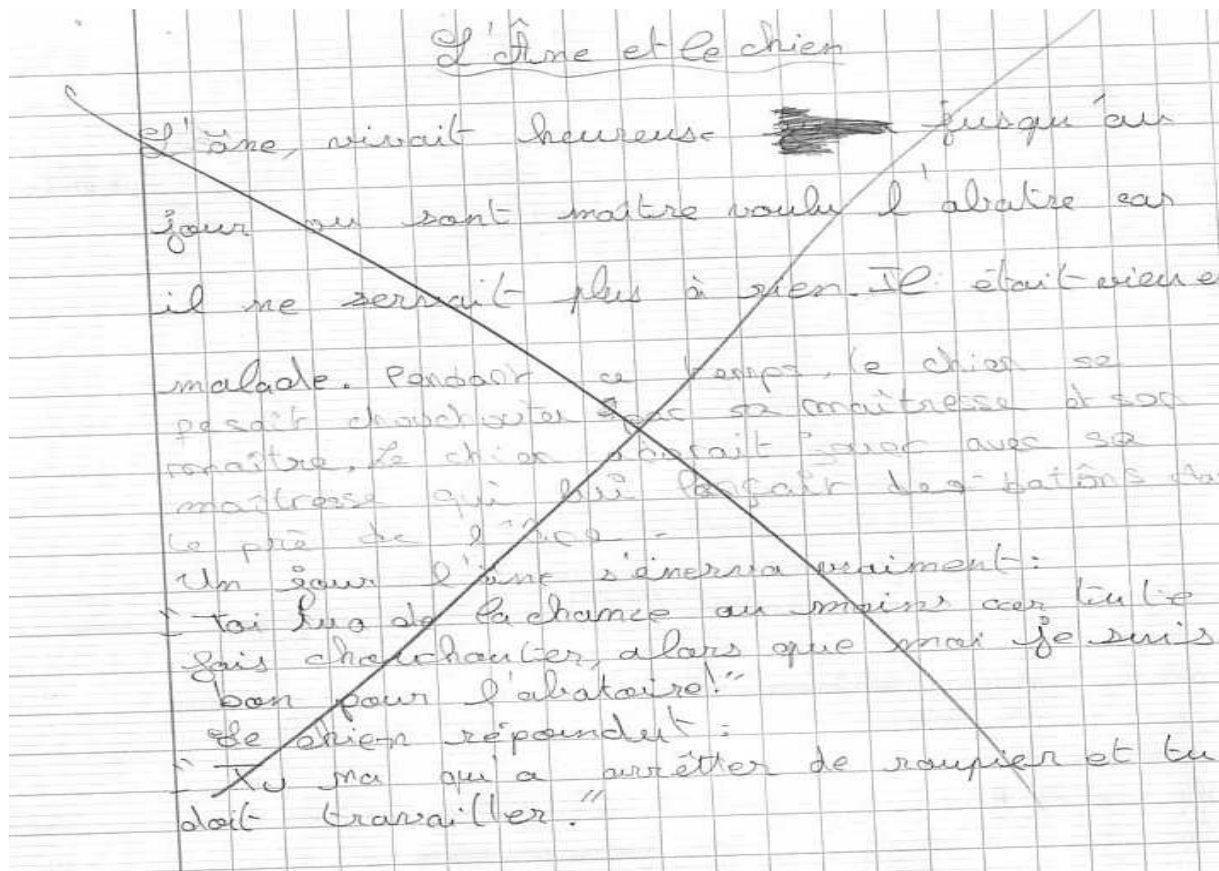 L'Âne et le chien
L'âne, vivait heureuse jusqu'au
jour ou sont maître voulu l'abatre car
il ne servait plus à rien. Il était vieu e
malade. Pendant ce temps, le chien se
fesait chouchouter par sa maîtresse et son
maître, Le chien adorait jouer avec sa
maîtresse qui lui lançait des batôns da
le pré de l'âne.
Un jour l'âne s'énerva vraiment :
- Toi tua de la chance au moins car tu te
fais chouchouter, alors que moi je suis
bon pour l'abatoire!"
Le chien répondut :
- Tu na qu'a arrêtter de roupier et tu
doit travailler."